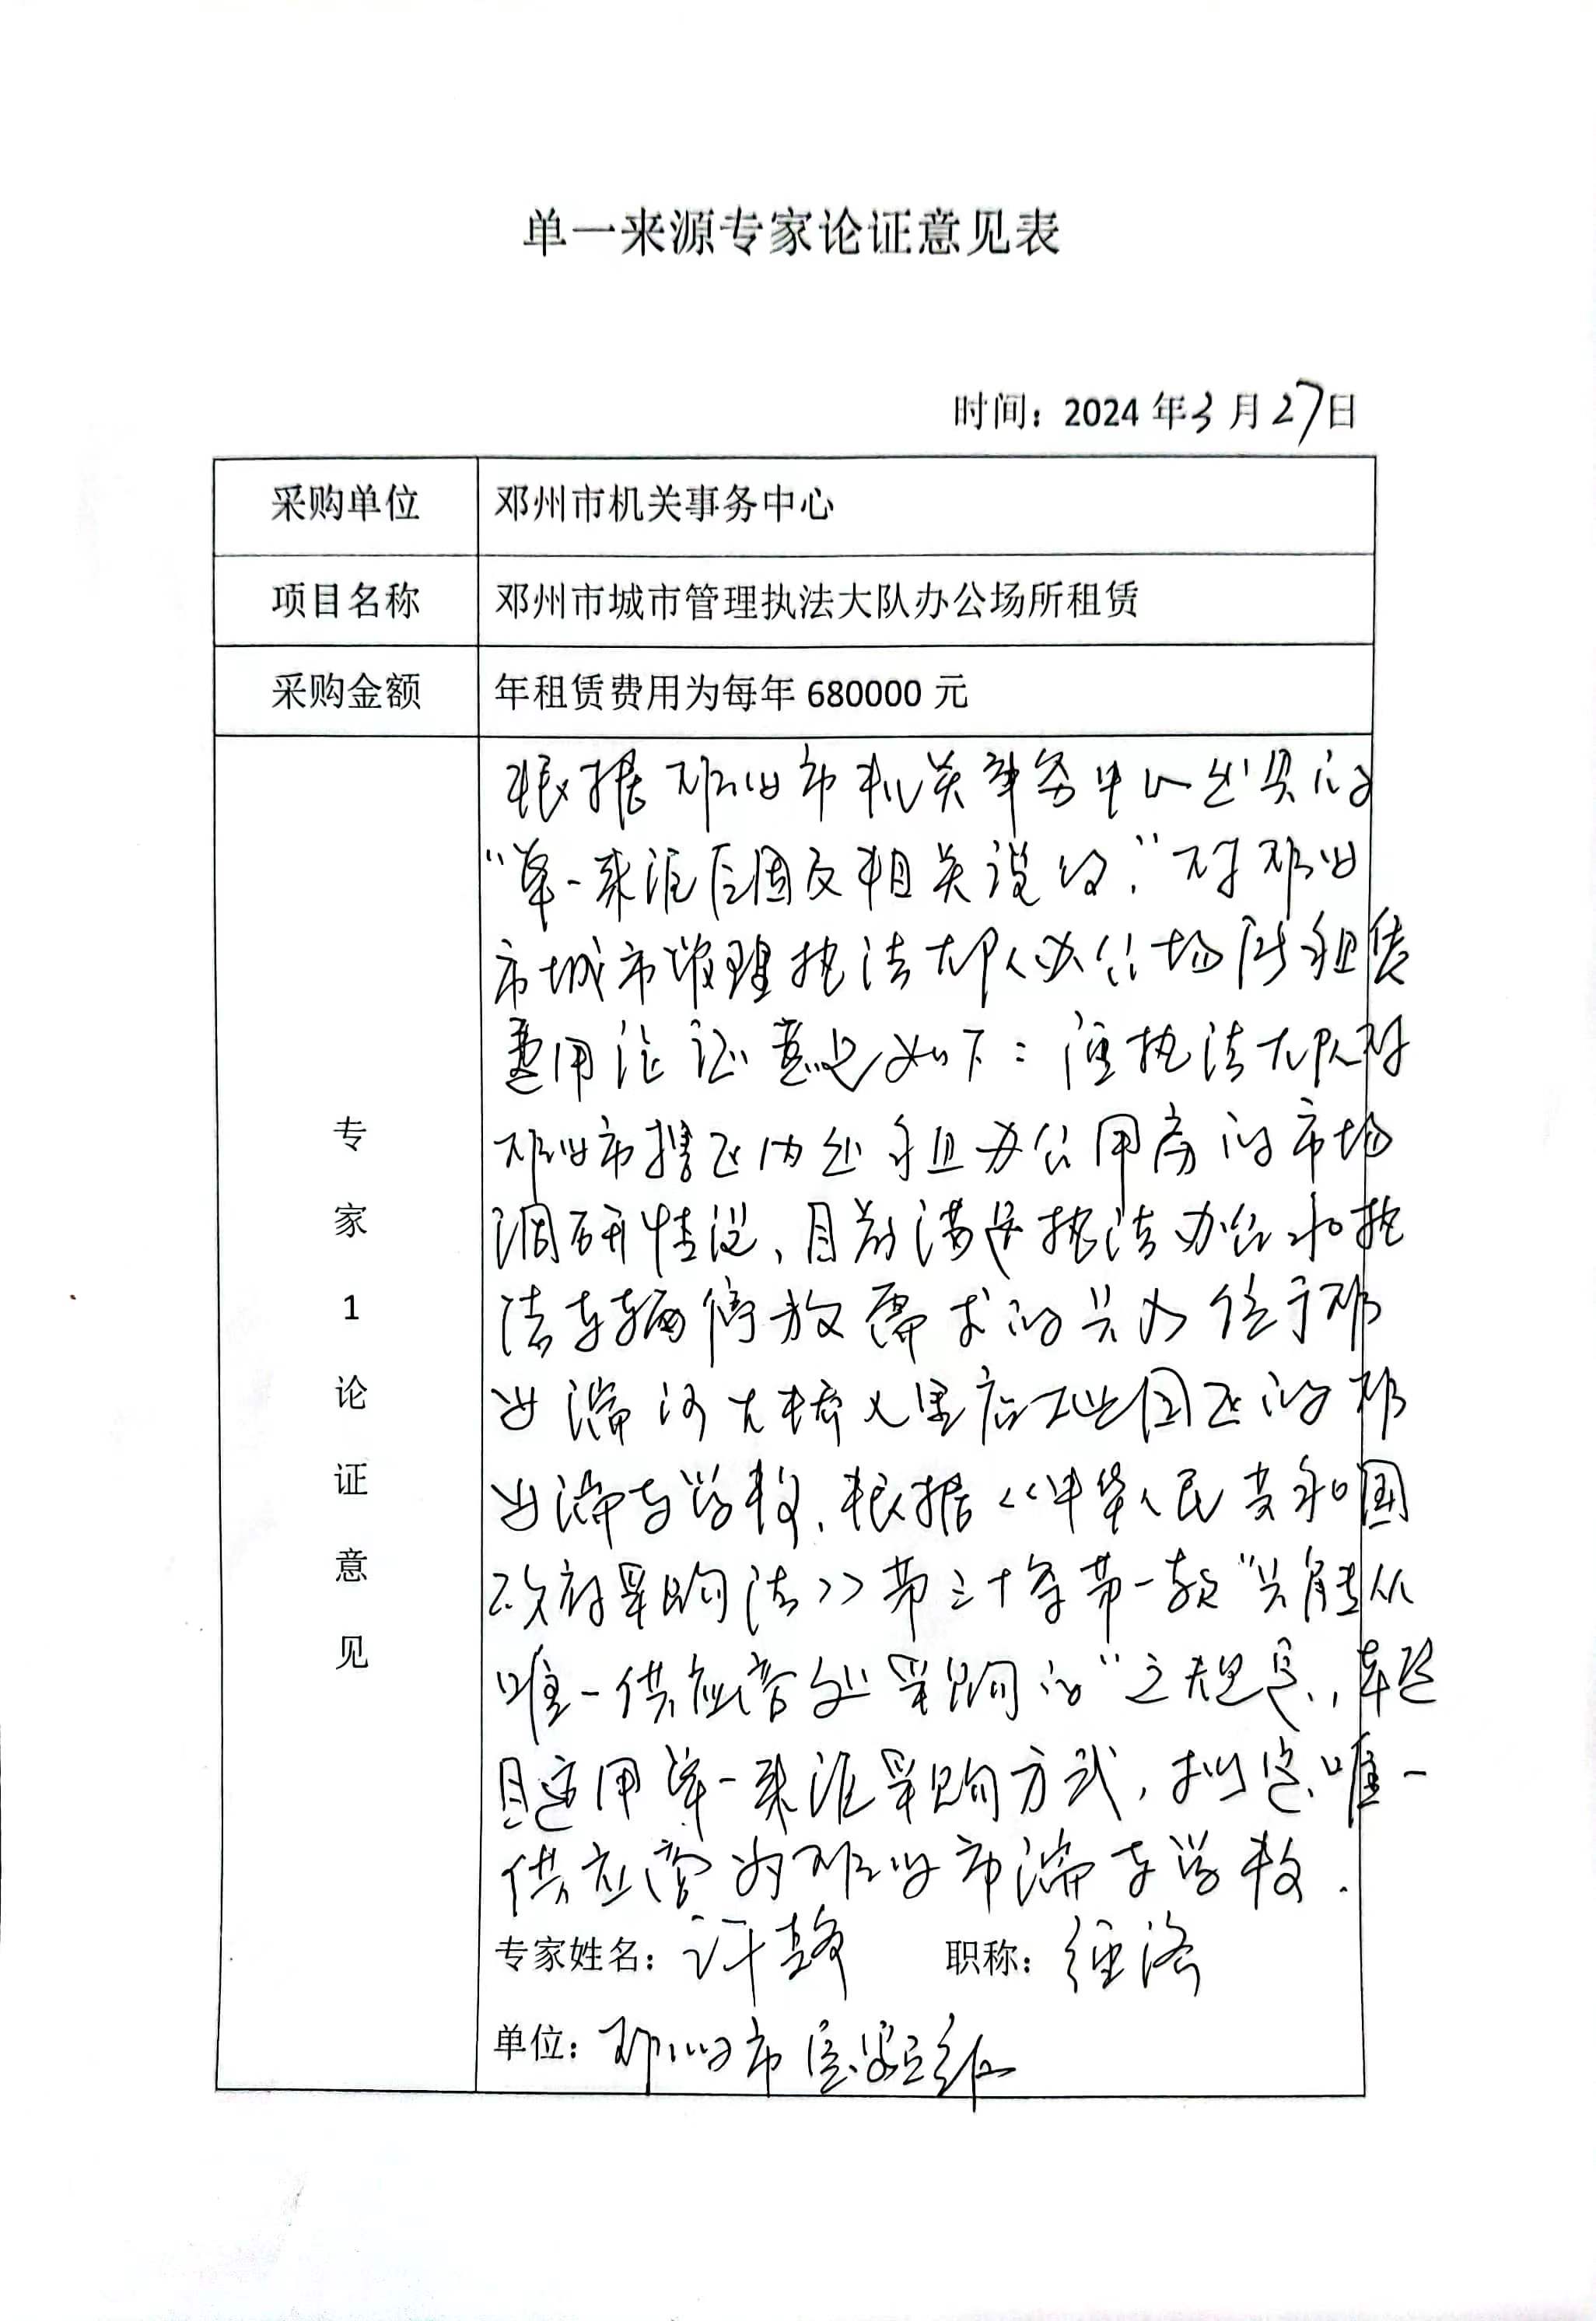 单一来源专家论证意见表
时间：2024年3月27日
采购单位 邓州市机关事务中心
项目名称 邓州市城市管理执法大队办公场所租赁
采购金额 年租赁费用为每年 680000 元
专家1论证意见
根据邓州市机关事务中心出具的
“单一来源原因及相关说明”对邓州
市城市管理执法大队办公场所租赁
费用论证意见如下：经执法大队对
邓州市辖区内出租办公用房的市场
调研情况、目前满足执法办公和执
法车辆停放需求的只有位于邓
州湍河大桥八里店工业园区的邓
州湍东学校，根据《中华人民共和国
政府采购法》第三十条第一款“只能从
唯一供应商处采购的”之规定，本项
目适用单一来源采购方式，拟定唯一
供应商为邓州市湍东学校．
专家姓名：许 职称：经济
单位：邓州市